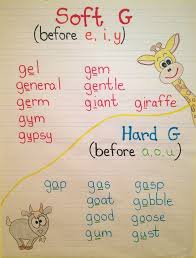 Soft G
(before e, i, y)
gel gem
general gentle
germ giant giraffe
gym
gypsy
Hard G
(before a, o, u)
gap gas gasp
goat gobble
good goose
gum gust